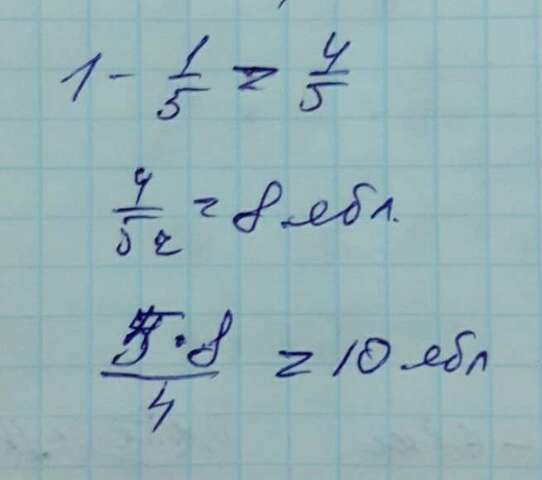 1 - 1/5 = 4/5
4/5 = 8 ябл.
5·8/4 = 10 ябл